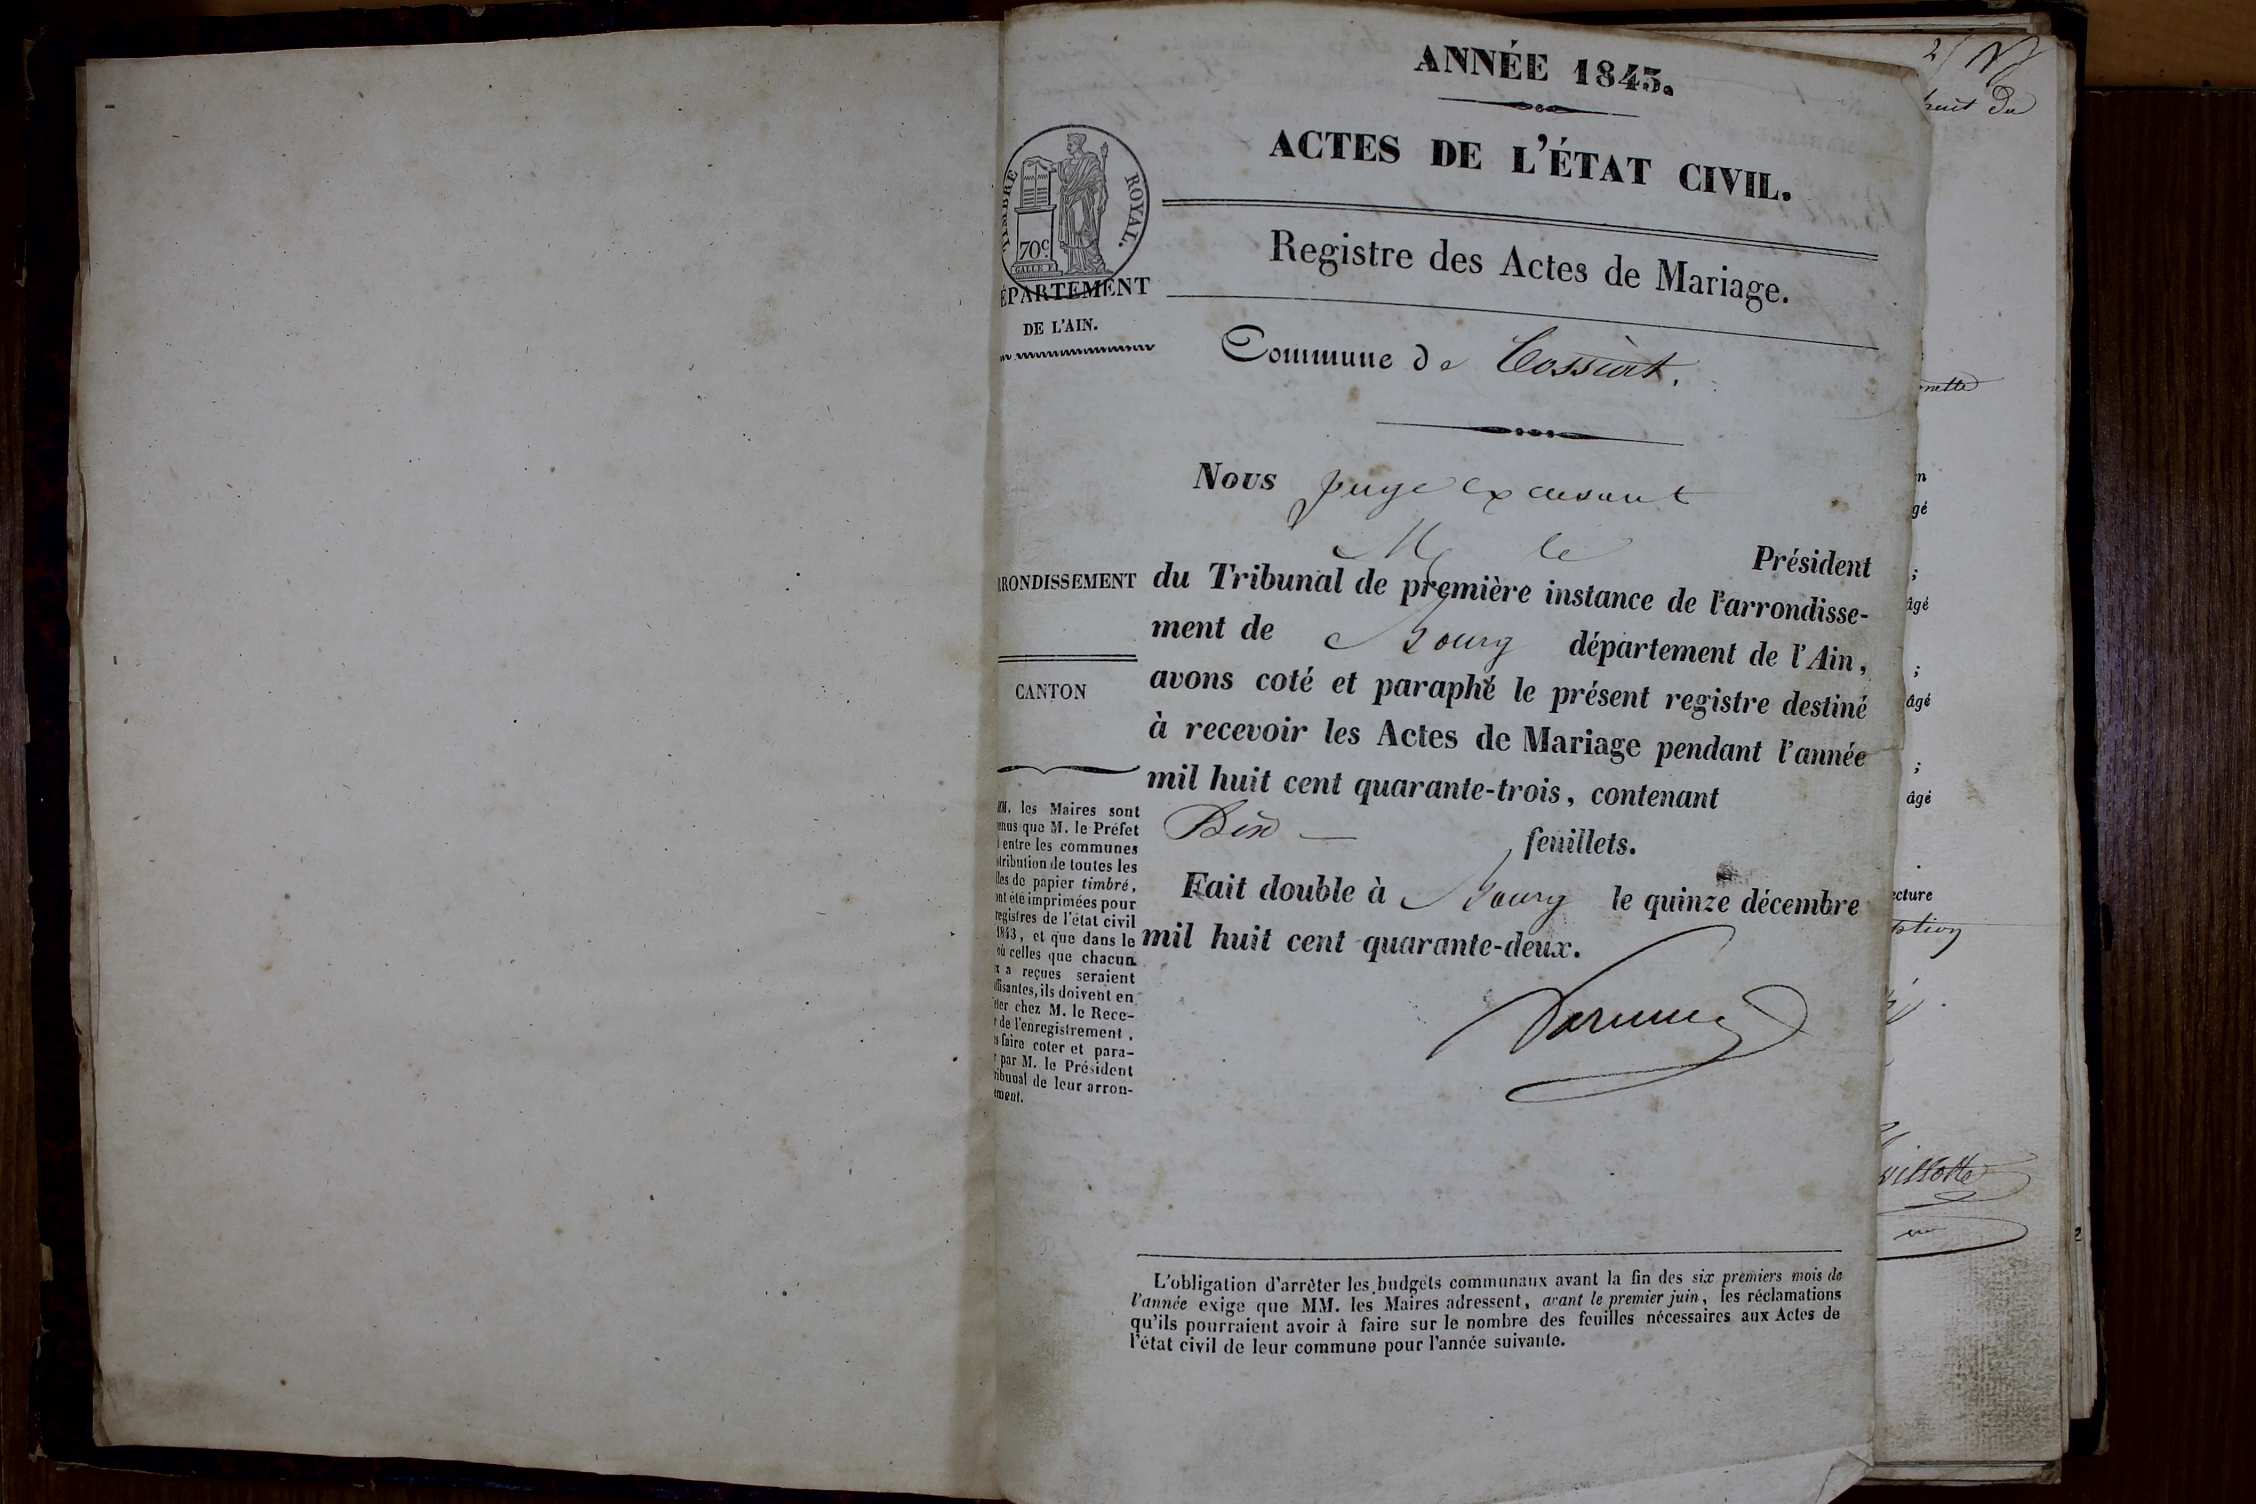 ANNÉE 1843.
ACTES DE L'ÉTAT CIVIL.
TIMBRE ROYAL.
70c
GALLE F.
Registre des Actes de Mariage.
ÉPARTEMENT
DE L'AIN.
Commune de Cossiat.
Nous juge excusant
M le Président
RRONDISSEMENT
du Tribunal de première instance de l'arrondisse-
ment de Bourg département de l'Ain,
CANTON
avons coté et paraphé le présent registre destiné
à recevoir les Actes de Mariage pendant l'année
mil huit cent quarante-trois, contenant
Dix feuillets.
Fait double à Bourg le quinze décembre
mil huit cent quarante-deux.
MM. les Maires sont
enus que M. le Préfet
entre les communes
stribution de toutes les
lles de papier timbré,
ont été imprimées pour
registres de l'état civil
1843, et que dans le
où celles que chacun
x a reçues seraient
ffisantes, ils doivent en
eter chez M. le Rece-
r de l'enregistrement,
s faire coter et para-
r par M. le Président
ribunal de leur arron-
ement.
L'obligation d'arrêter les budgets communaux avant la fin des six premiers mois de
l'année exige que MM. les Maires adressent, avant le premier juin, les réclamations
qu'ils pourraient avoir à faire sur le nombre des feuilles nécessaires aux Actes de
l'état civil de leur commune pour l'année suivante.
huit du
nette
n
gé
;
âgé
;
âgé
;
âgé
ecture